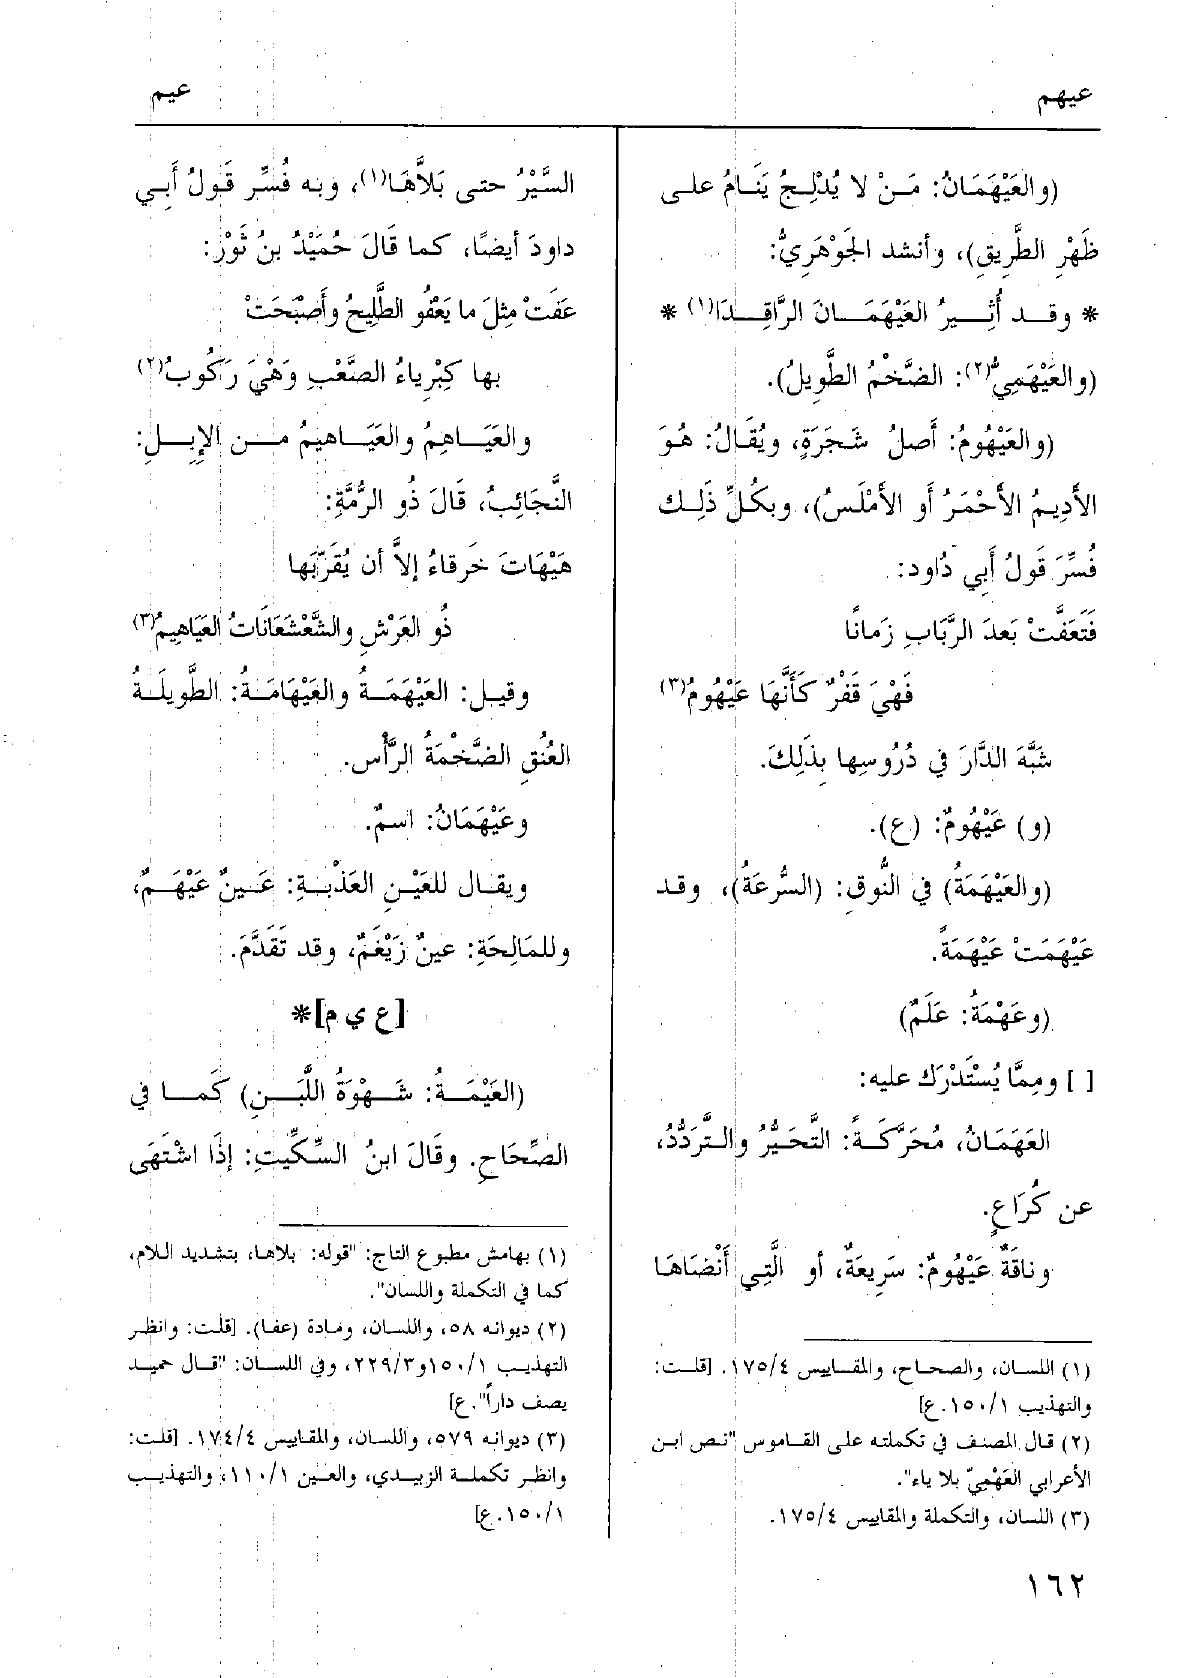 عيهم
عيم
(والعَيْهَمَانُ: مَنْ لا يُدْلِجُ يَنَامُ على
ظَهْرِ الطَّرِيقِ)، وأنشد الجَوْهَرِيُّ:
* وقد أُثِيرُ العَيْهَمَانَ الرَّاقِدَا(١) *
(والعَيْهَمِيُّ(٢): الضَّخْمُ الطَّوِيلُ).
(والعَيْهُومُ: أَصلُ شَجَرَةٍ، ويُقَالُ: هُوَ
الأَدِيمُ الأَحْمَرُ أَو الأَمْلَسُ)، وبكُلِّ ذَلِك
فُسِّرَ قَولُ أَبي دَاود:
فَتَعَفَّتْ بَعدَ الرَّبَابِ زَمَاناً
فَهْيَ قَفْرٌ كَأَنَّهَا عَيْهُومُ(٣)
شَبَّهَ الدَّارَ في دُرُوسِها بِذَلِكَ.
(و) عَيْهُومٌ: (ع).
(والعَيْهَمَةُ) في النُّوقِ: (السُّرعَةُ)، وقد
عَيْهَمَتْ عَيْهَمَةً.
(وعَهْمَةُ: عَلَمٌ)
[ ] ومِمَّا يُسْتَدْرَك عليه:
العَهَمَانُ، مُحَرَّكَةً: التَّحَيُّرُ والتَّرَدُّدُ،
عن كُرَاعٍ.
وناقَةٌ عَيْهُومٌ: سَرِيعَةٌ، أو الَّتِي أَنْضَاهَا
(١) اللسان، والصحاح، والمقاييس ١٧٥/٤. [قلت:
والتهذيب ١٥٠/١.ع]
(٢) قال المصنف في تكملته على القاموس "نص ابن
الأعرابي العَهْمِيّ بلا ياء".
(٣) اللسان، والتكملة والمقاييس ١٧٥/٤.
السَّيْرُ حتى بَلاَّهَا(١)، وبه فُسِّر قَولُ أَبي
داودَ أيضًا، كما قَالَ حُمَيْدُ بنُ ثَوْرٍ:
عَفَتْ مِثلَ ما يَعْفُو الطَّلِيحُ وأَصْبَحَتْ
بها كِبْرِياءُ الصَّعْبِ وَهْيَ رَكُوبُ(٢)
والعَيَاهِمُ والعَيَاهيمُ من الإِبِلِ:
النَّجَائِبُ، قَالَ ذُو الرُّمَّةِ:
هَيْهَاتَ خَرقاءُ إلاَّ أن يُقَرِّبَها
ذُو العَرْشِ والشَّعْشَعَانَاتُ العَيَاهِيمُ(٣)
وقيل: العَيْهَمَةُ والعَيْهَامَةُ: الطَّويلَةُ
العُنُقِ الضَّخْمَةُ الرَّأْس.
وعَيْهَمَانُ: اسمٌ.
ويقال للعَيْنِ العَذْبةِ: عَينٌ عَيْهَمٌ،
وللمَالِحَةِ: عينٌ زَيْغَمٌ، وقد تَقَدَّمَ.
[ع ي م]*
(العَيْمَةُ: شَهْوَةُ اللَّبَنِ) كَما في
الصِّحَاحِ. وقَالَ ابنُ السِّكِّيتِ: إذَا اشْتَهَى
(١) بهامش مطبوع التاج: "قوله: بلاها، بتشديد اللام،
كما في التكملة واللسان".
(٢) ديوانه ٥٨، واللسان، ومادة (عفا). [قلت: وانظر
التهذيب ١٥٠/١و٢٢٩/٣، وفي اللسان: "قال حميد
يصف داراً".ع]
(٣) ديوانه ٥٧٩، واللسان، والمقاييس ١٧٤/٤. [قلت:
وانظر تكملة الزبيدي، والعين ١١٠/١، والتهذيب
١٥٠/١.ع]
١٦٢